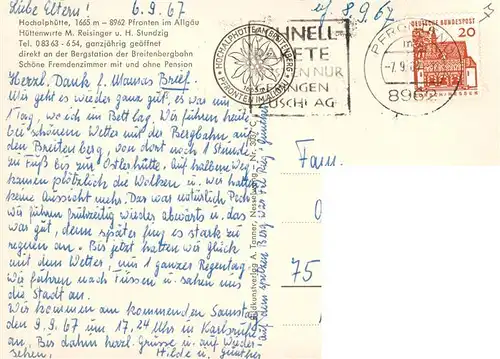 Liebe Eltern! 6.9.67
Hochalphütte, 1665 m - 8962 Pfronten im Allgäu
Hüttenwirte M. Reisinger u. H. Stundzig
Tel. 0 83 63 - 6 54, ganzjährig geöffnet
direkt an der Bergstation der Breitenbergbahn
Schöne Fremdenzimmer mit und ohne Pension
Herzl. Dank f. Mamas Brief.
Mir geht es wieder ganz gut, es war nur
1 Tag, wo ich im Bett lag. Wir fuhren heute
bei schönem Wetter mit der Bergbahn auf
den Breitenberg, von dort noch 1 Stunde
zu Fuß bis zur Ostlerhütte. Auf halbem Weg
kamen plötzlich die Wolken u. wir hatten
keine Aussicht mehr. Das war natürlich Pech.
Wir fuhren frühzeitig wieder abwärts u. das
war gut, denn später fing es stark zu
regnen an. Bis jetzt hatten wir Glück
mit dem Wetter, nur 1 ganzer Regentag.
Wir fuhren nach Füssen u. sahen uns
die Stadt an.
Wir kommen am kommenden Samstag
den 9.9.67 um 17.24 Uhr in Karlsruhe
an. Bis dahin herzl. Grüsse u. auf Wieder-
sehen! Hilde u. Günther
Auf dem Berg war
HOCHALPHÜTTE AM BREITENBERG
1665 m
PFRONTEN IM ALLGÄU
A. Tanner, Nesselwang - Nr. 3307 C
8.9.67
HNELL
NUR
NGEN
USCHLAG
-7.9.67
896
DEUTSCHE BUNDESPOST
20
LORSCH/HESSEN
Fam.
75